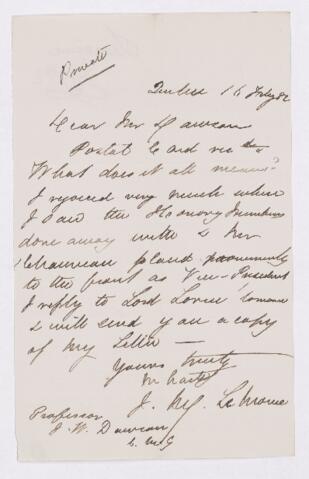 Private
Quebec 16 Feby 82
Dear Mr Dawson
Postal Card recd
What does it all mean?
I rejoiced very much when
I saw the Honory Members
done away with & Mr
Chauveau placed prominently
to the front as Vice-President
I reply to Lord Lorne
& will send you a copy
of my Letter —
Yours truly
in haste
J. M. LeMoine
Professor
J. W. Dawson
C.M.G